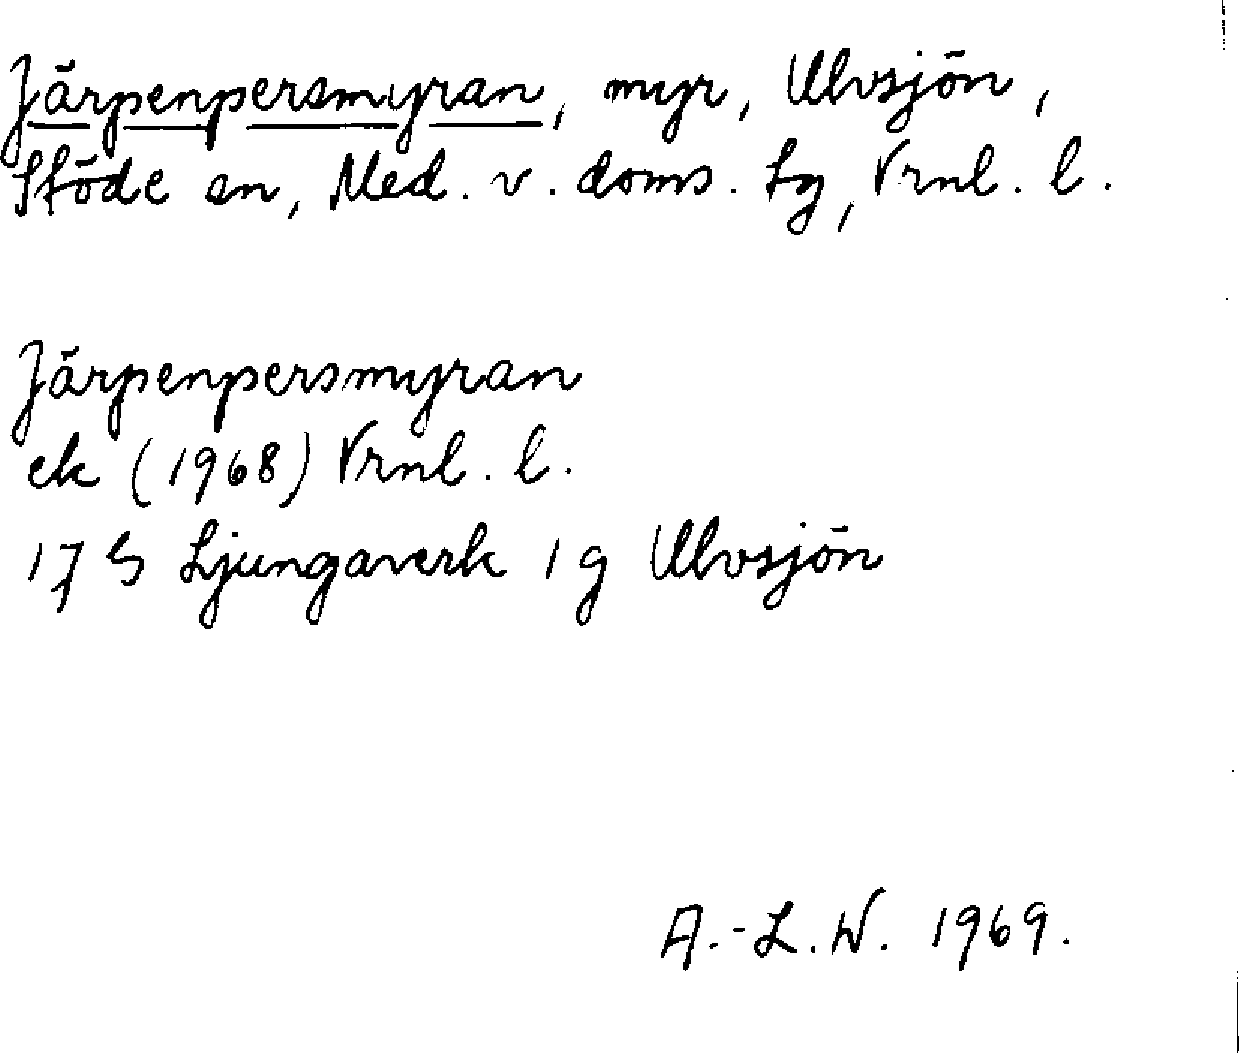 Järpenpersmyran, myr, Ulvsjön,
Stöde sn, Med. v. doms. tg, Vrnl. l.
Järpenpersmyran
ek (1968) Vrnl. l.
17 G Ljungaverk 1 g Ulvsjön
A.-L. W. 1969.